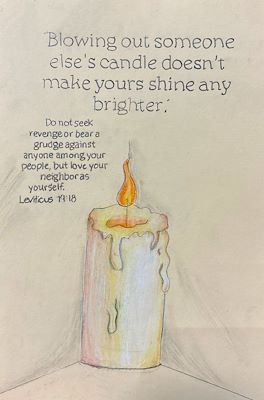 "Blowing out someone
else's candle doesn't
make yours shine any
brighter."
Do not seek
revenge or bear a
grudge against
anyone among your
people, but love your
neighbor as
yourself.
Leviticus 19:18